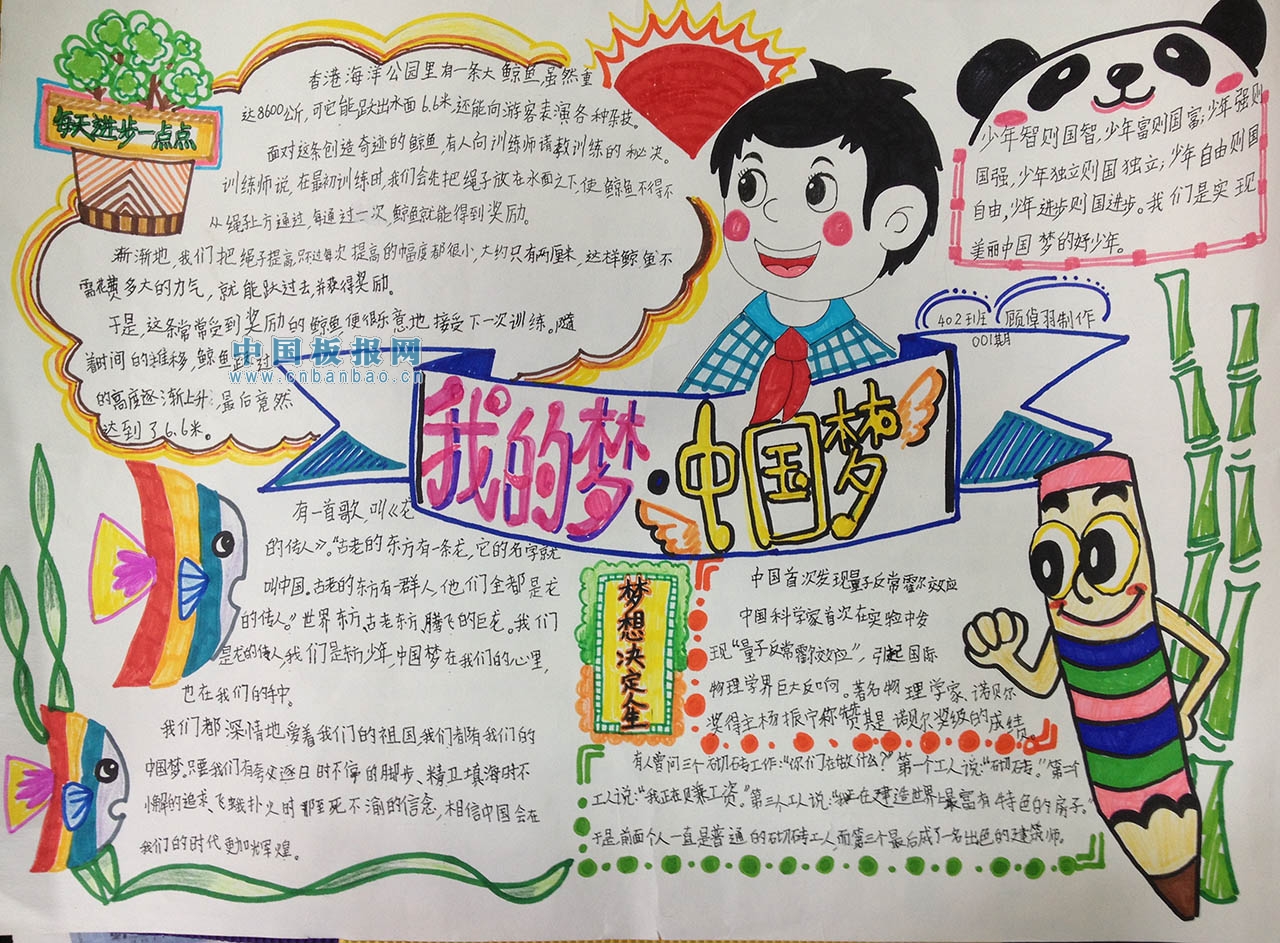 每天进步一点点
香港海洋公园里有一条大鲸鱼,虽然重
达8600公斤,可它能跃出水面6.6米,还能向游客表演各种杂技。
面对这条创造奇迹的鲸鱼,有人向训练师请教训练的秘决。
训练师说,在最初训练时,我们会先把绳子放在水面之下,使鲸鱼不得不
从绳子上方通过,每通过一次,鲸鱼就能得到奖励。
渐渐地,我们把绳子提高,跃过每次提高的幅度都很小,大约只有两厘米,这样鲸鱼不
需花费多大的力气,就能跃过去,并获得奖励。
于是,这条常常受到奖励的鲸鱼便很乐意地接受下一次训练。随
着时间的推移,鲸鱼跃过
的高度逐渐上升,最后竟然
达到了6.6米。
中国板报网
www.cnbanbao.cn
少年智则国智,少年富则国富;少年强则
国强,少年独立则国独立;少年自由则国
自由,少年进步则国进步。我们是实现
美丽中国梦的好少年。
402班 顾倬羽制作
001期
我的梦·中国梦
有一首歌,叫《龙
的传人》。“古老的东方有一条龙,它的名字就
叫中国。古老的东方有一群人,他们全都是龙
的传人。”世界东方,古老东方,腾飞的巨龙。我们
是龙的传人,我们是新少年,中国梦在我们的心里,
也在我们的手中。
我们都深情地爱着我们的祖国,我们都有我们的
中国梦。只要我们有夸父逐日时不停的脚步、精卫填海时不
懈的追求、飞蛾扑火时那至死不渝的信念,相信中国会在
我们的时代更加辉煌。
梦想决定人生
中国首次发现量子反常霍尔效应
中国科学家首次在实验中发
现“量子反常霍尔效应”,引起国际
物理学界巨大反响。著名物理学家、诺贝尔
奖得主杨振宁称赞其是诺贝尔奖级的成绩。
有人曾问三个砌砖工作:“你们在做什么?”第一个工人说:“砌砖。”第二个
工人说:“我正在赚工资。”第三人工人说:“我正在建造世界上最富有特色的房子。”
于是前面个人一直是普通的砌砖工人,而第三个最后成了一名出色的建筑师。